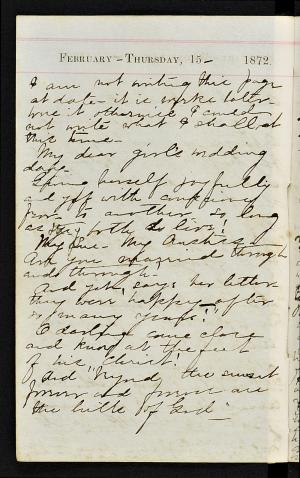 FEBRUARY - THURSDAY, 15 - 1872.
I am not writing this page
at date - it is weeks later
were it otherwise I could
not write what I shall at
this time -
My dear girl's wedding
day -
giving herself joyfully
and with confiding
to another so long
as they both do live!
My
Are you married through
and through -
And yet, says her letter
they were happy after
so many years!"
O darling come close
and kneel at the feet
of
And "beyond the sunset
and are
the hills of God"